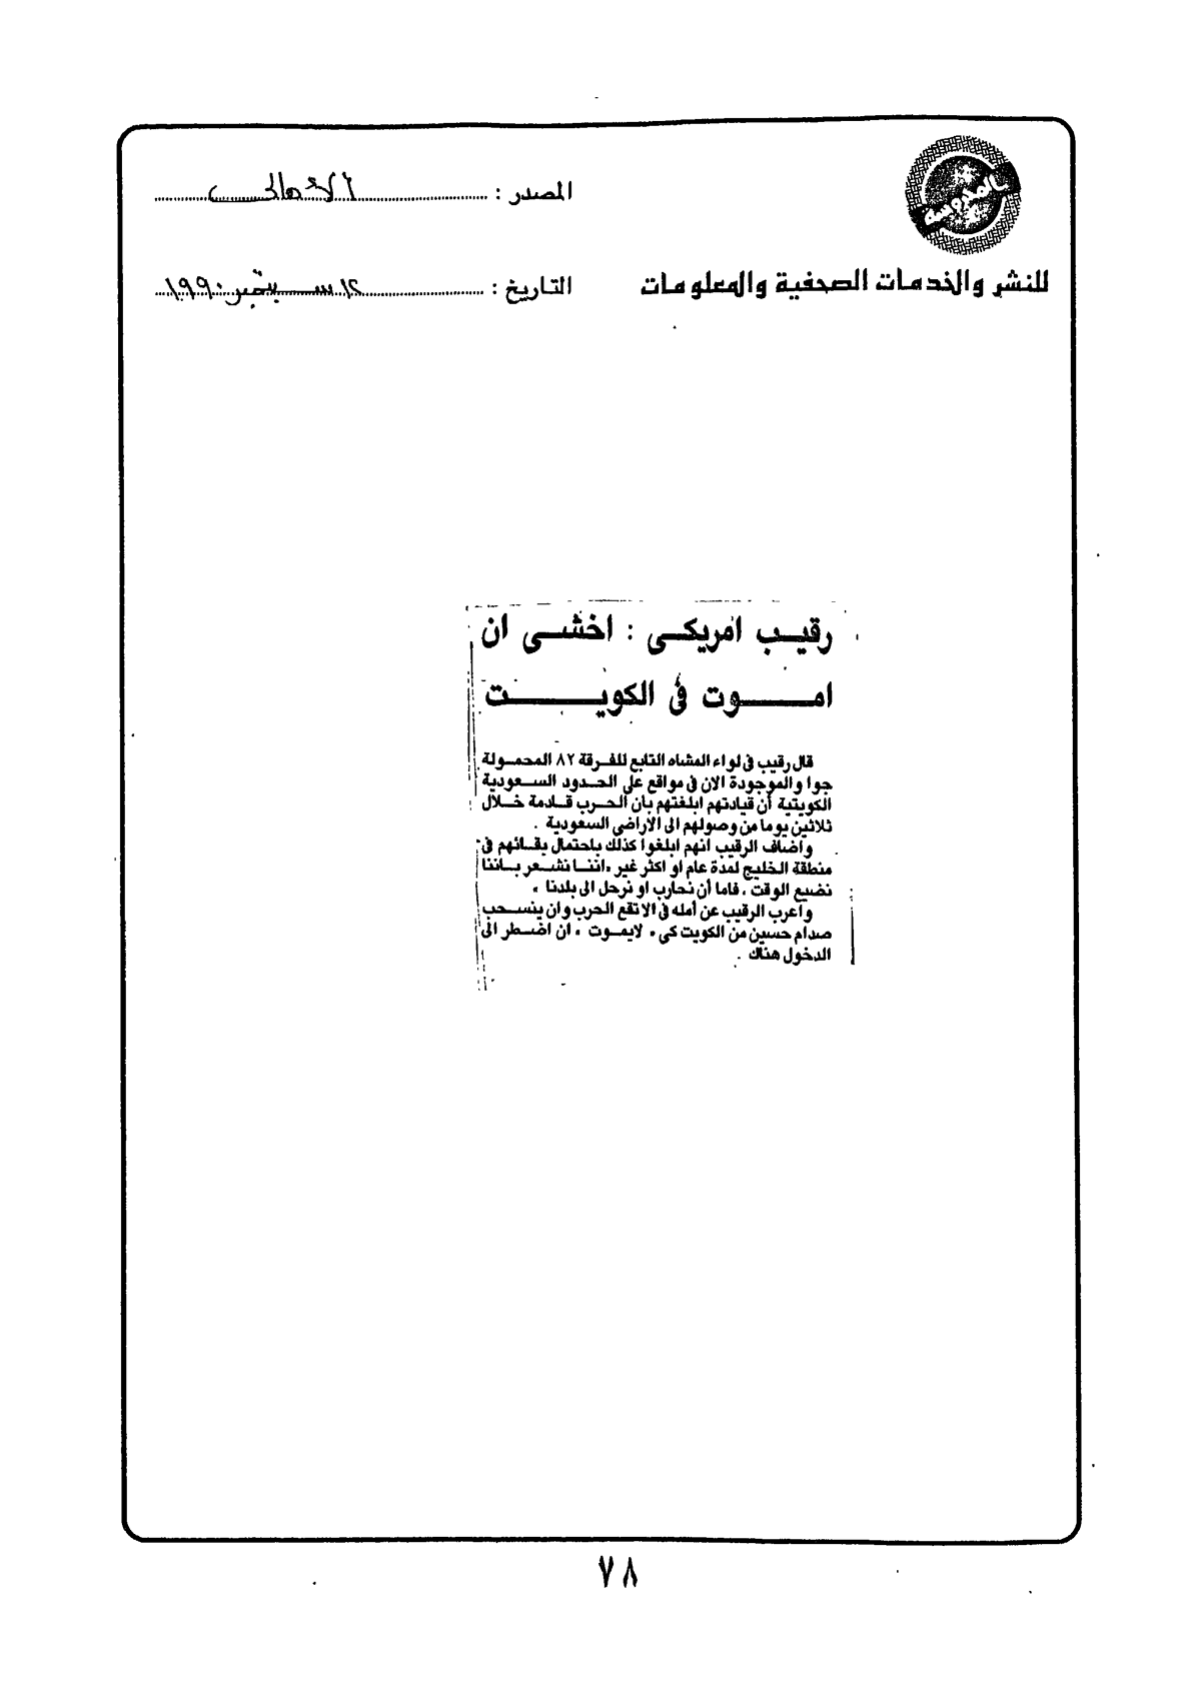 المحروسة
للنشر والخدمات الصحفية والمعلومات
المصدر : الأهالى
التاريخ : ١٢ سبتمبر ١٩٩٠
رقيب امريكى : اخشى ان
اموت فى الكويت
قال رقيب فى لواء المشاه التابع للفرقة ٨٢ المحمولة
جوا والموجودة الان فى مواقع على الحدود السعودية
الكويتية أن قيادتهم ابلغتهم بان الحرب قادمة خلال
ثلاثين يوما من وصولهم الى الاراضى السعودية .
واضاف الرقيب انهم ابلغوا كذلك باحتمال بقائهم فى
منطقة الخليج لمدة عام او اكثر غير «اننا نشعر باننا
نضيع الوقت ، فاما أن نحارب او نرحل الى بلدنا »
واعرب الرقيب عن أمله فى الا تقع الحرب وان ينسحب
صدام حسين من الكويت كى « لايموت » ان اضطر الى
الدخول هناك .
٧٨